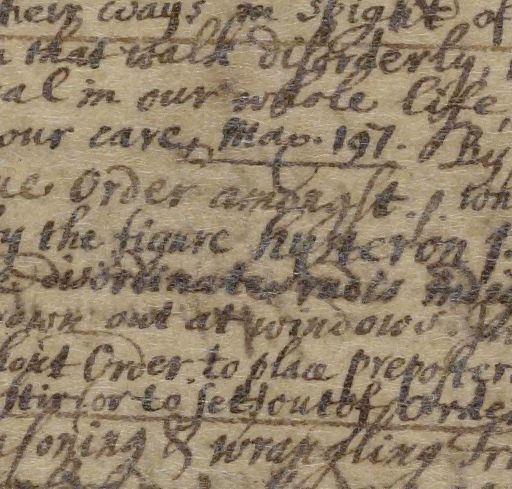 their ways in spight of
that walk disorderly,
al in our whole life
our care, Map. 197. By
ue Order amongst.
y the figure hysteron
disordinate
out at windows
hout Order, to place preposter
stir or to set out of Order
soning & wrangling